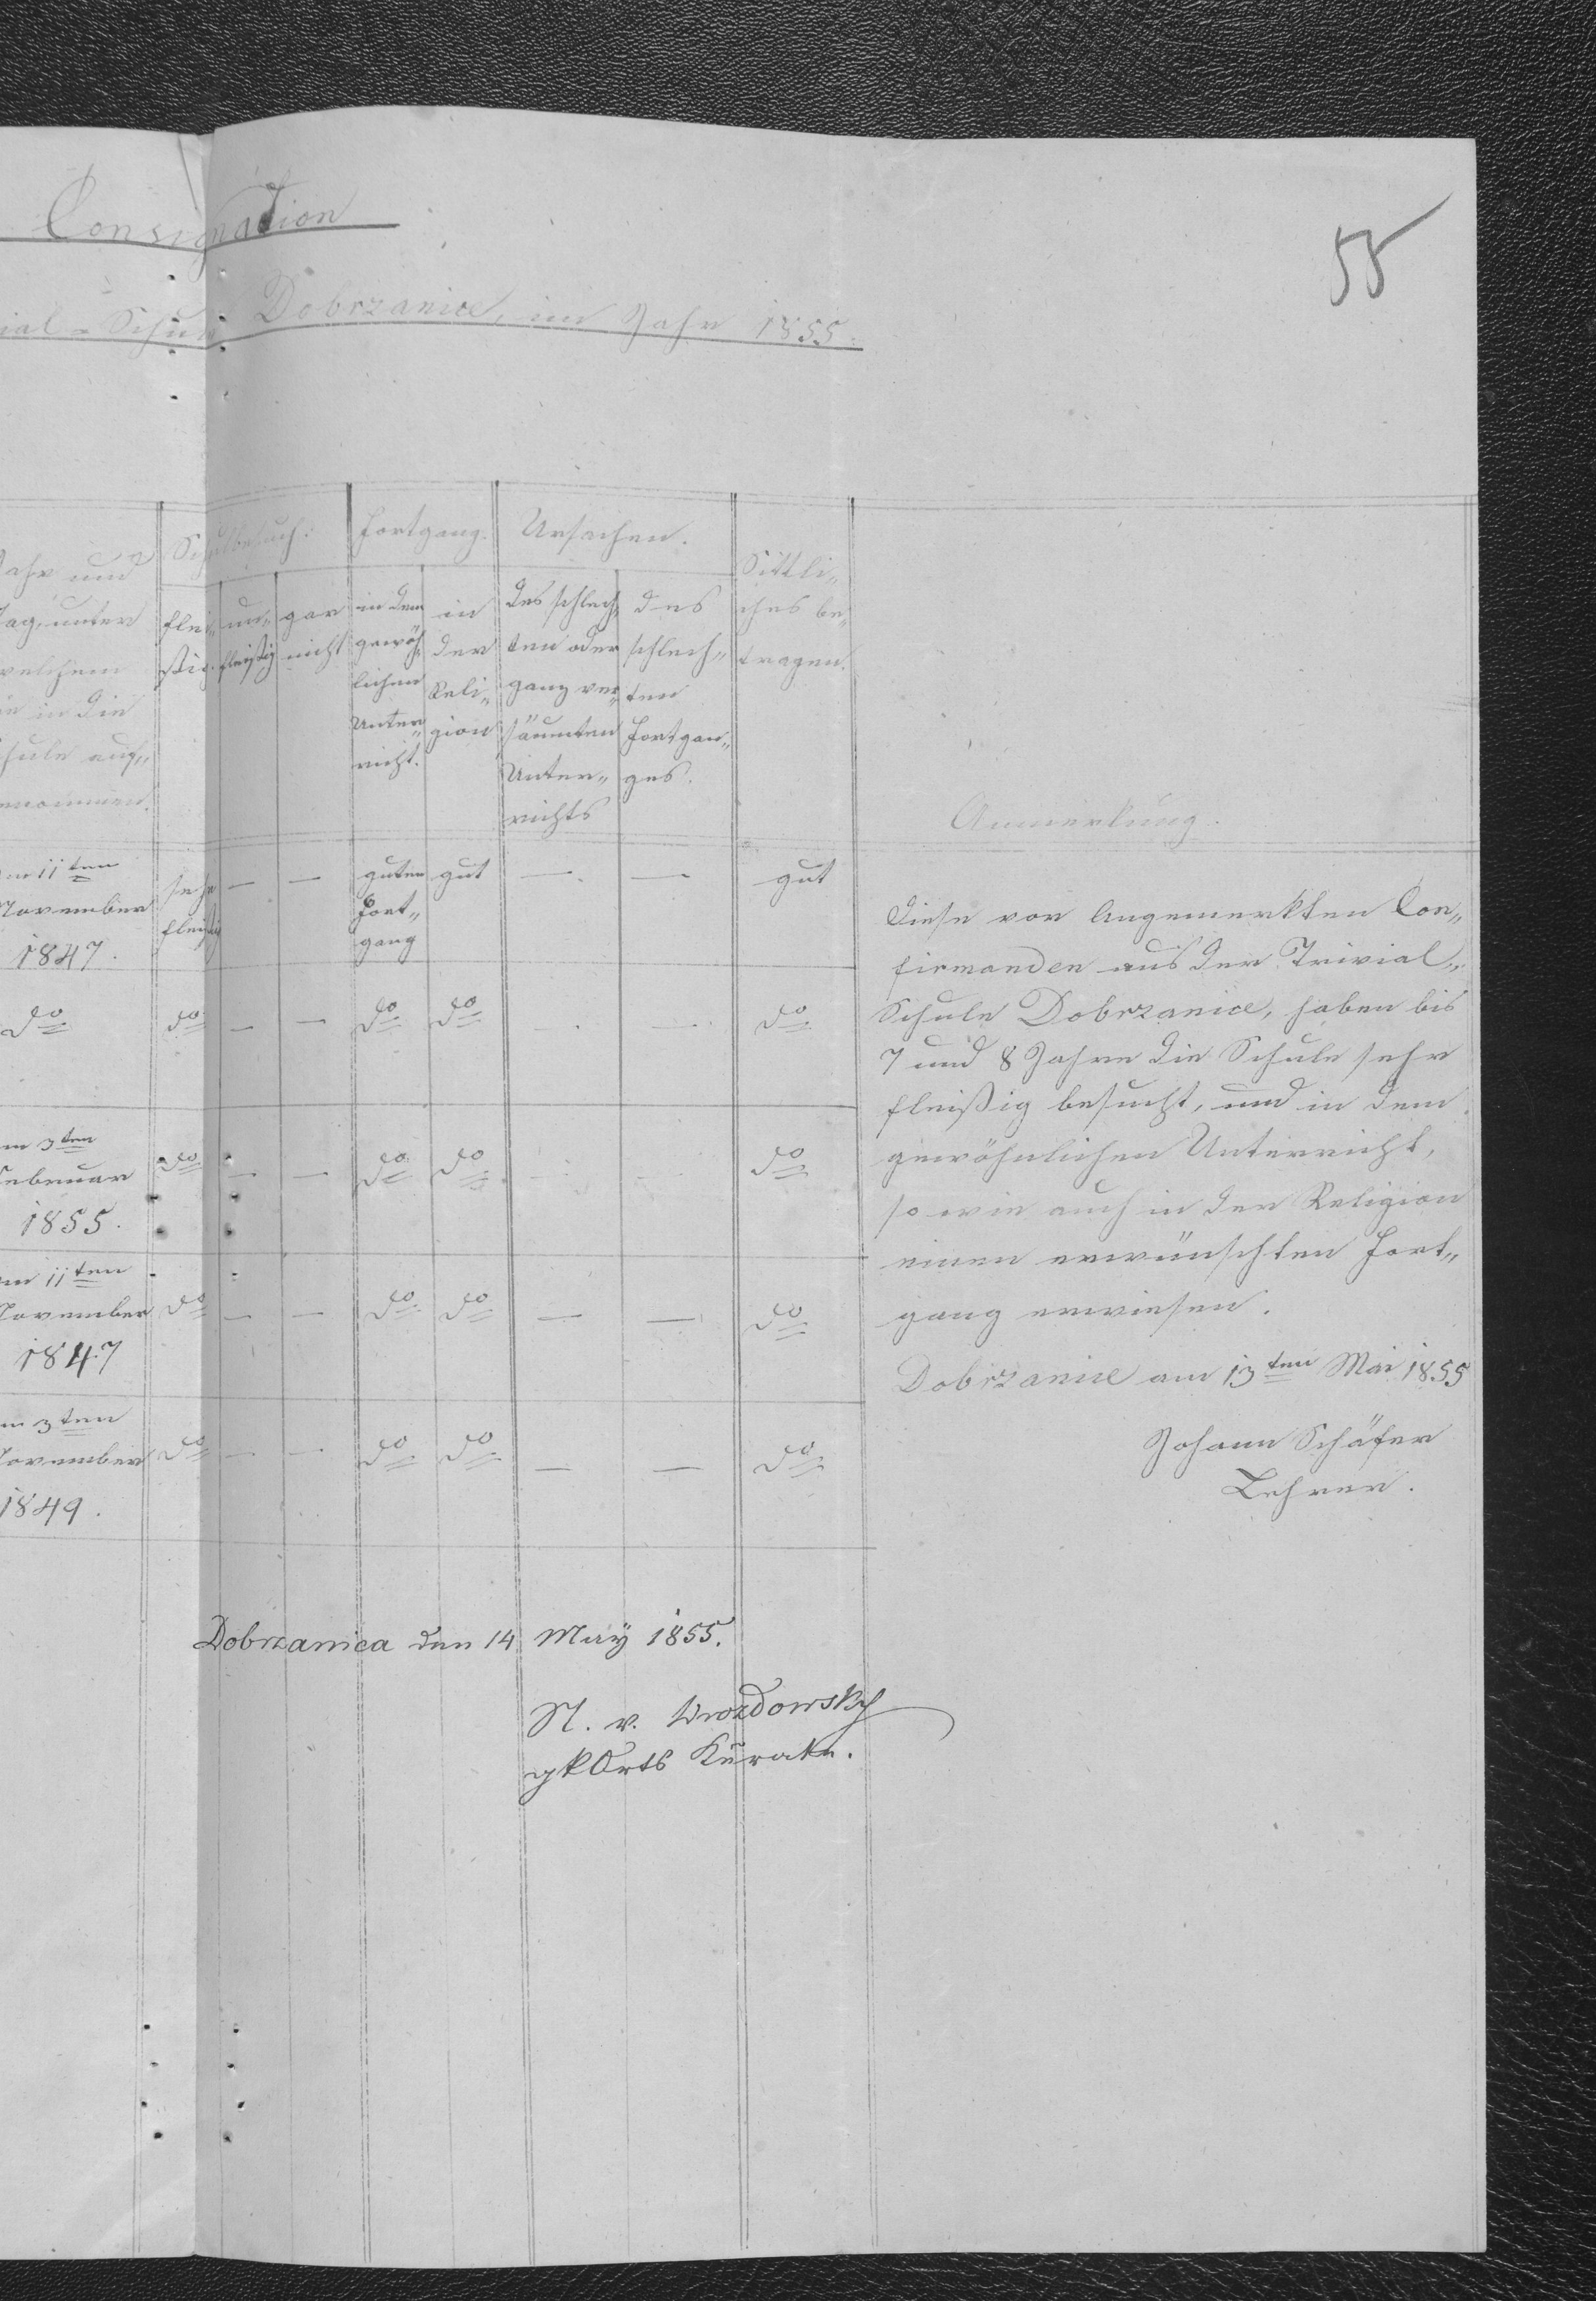 Consignation
55
ial-Schule Dobrzanice, im Jahr 1855.
Jahr und
Tag, unter
welchem
sie in die
Schule auf„
genommen.
Schulbesuch.
flei„
ßig.
un„
fleißig
gar
nicht
Fortgang.
in dem
gewöh„
lichen
Unter„
richt.
in
der
Reli„
gion
Ursachen.
des schlech„
ten oder
ganz ver„
säumten
Unter„
richts
des
schlech„
ten
Fortgan„
ges.
Sittli„
ches be„
tragen.
Anmerkung.
11ten
November
1847.
sehr
fleißig
—
—
guten
Fort„
gang
gut
—
—
gut
do
do
—
—
do
do
—
—
do
3ten
Februar
1855.
do
—
—
do
do
—
—
do
11ten
November
1847
do
—
—
do
do
—
—
do
3ten
November
1849.
do
—
—
do
do
—
—
do
Diese vor Angemerkten Con„
firmanden aus der Trivial„
Schule Dobrzanice, haben bis
7 und 8 Jahre die Schule sehr
fleißig besucht, und in dem
gewöhnlichen Unterricht,
so wie auch in der Religion
einen erwünschten Fort„
gang erwiesen.
Dobrzanice am 13ten Mai 1855
Johann Schäfer
Lehrer.
Dobrzanica den 14 May 1855.
gk Orts Kurate.